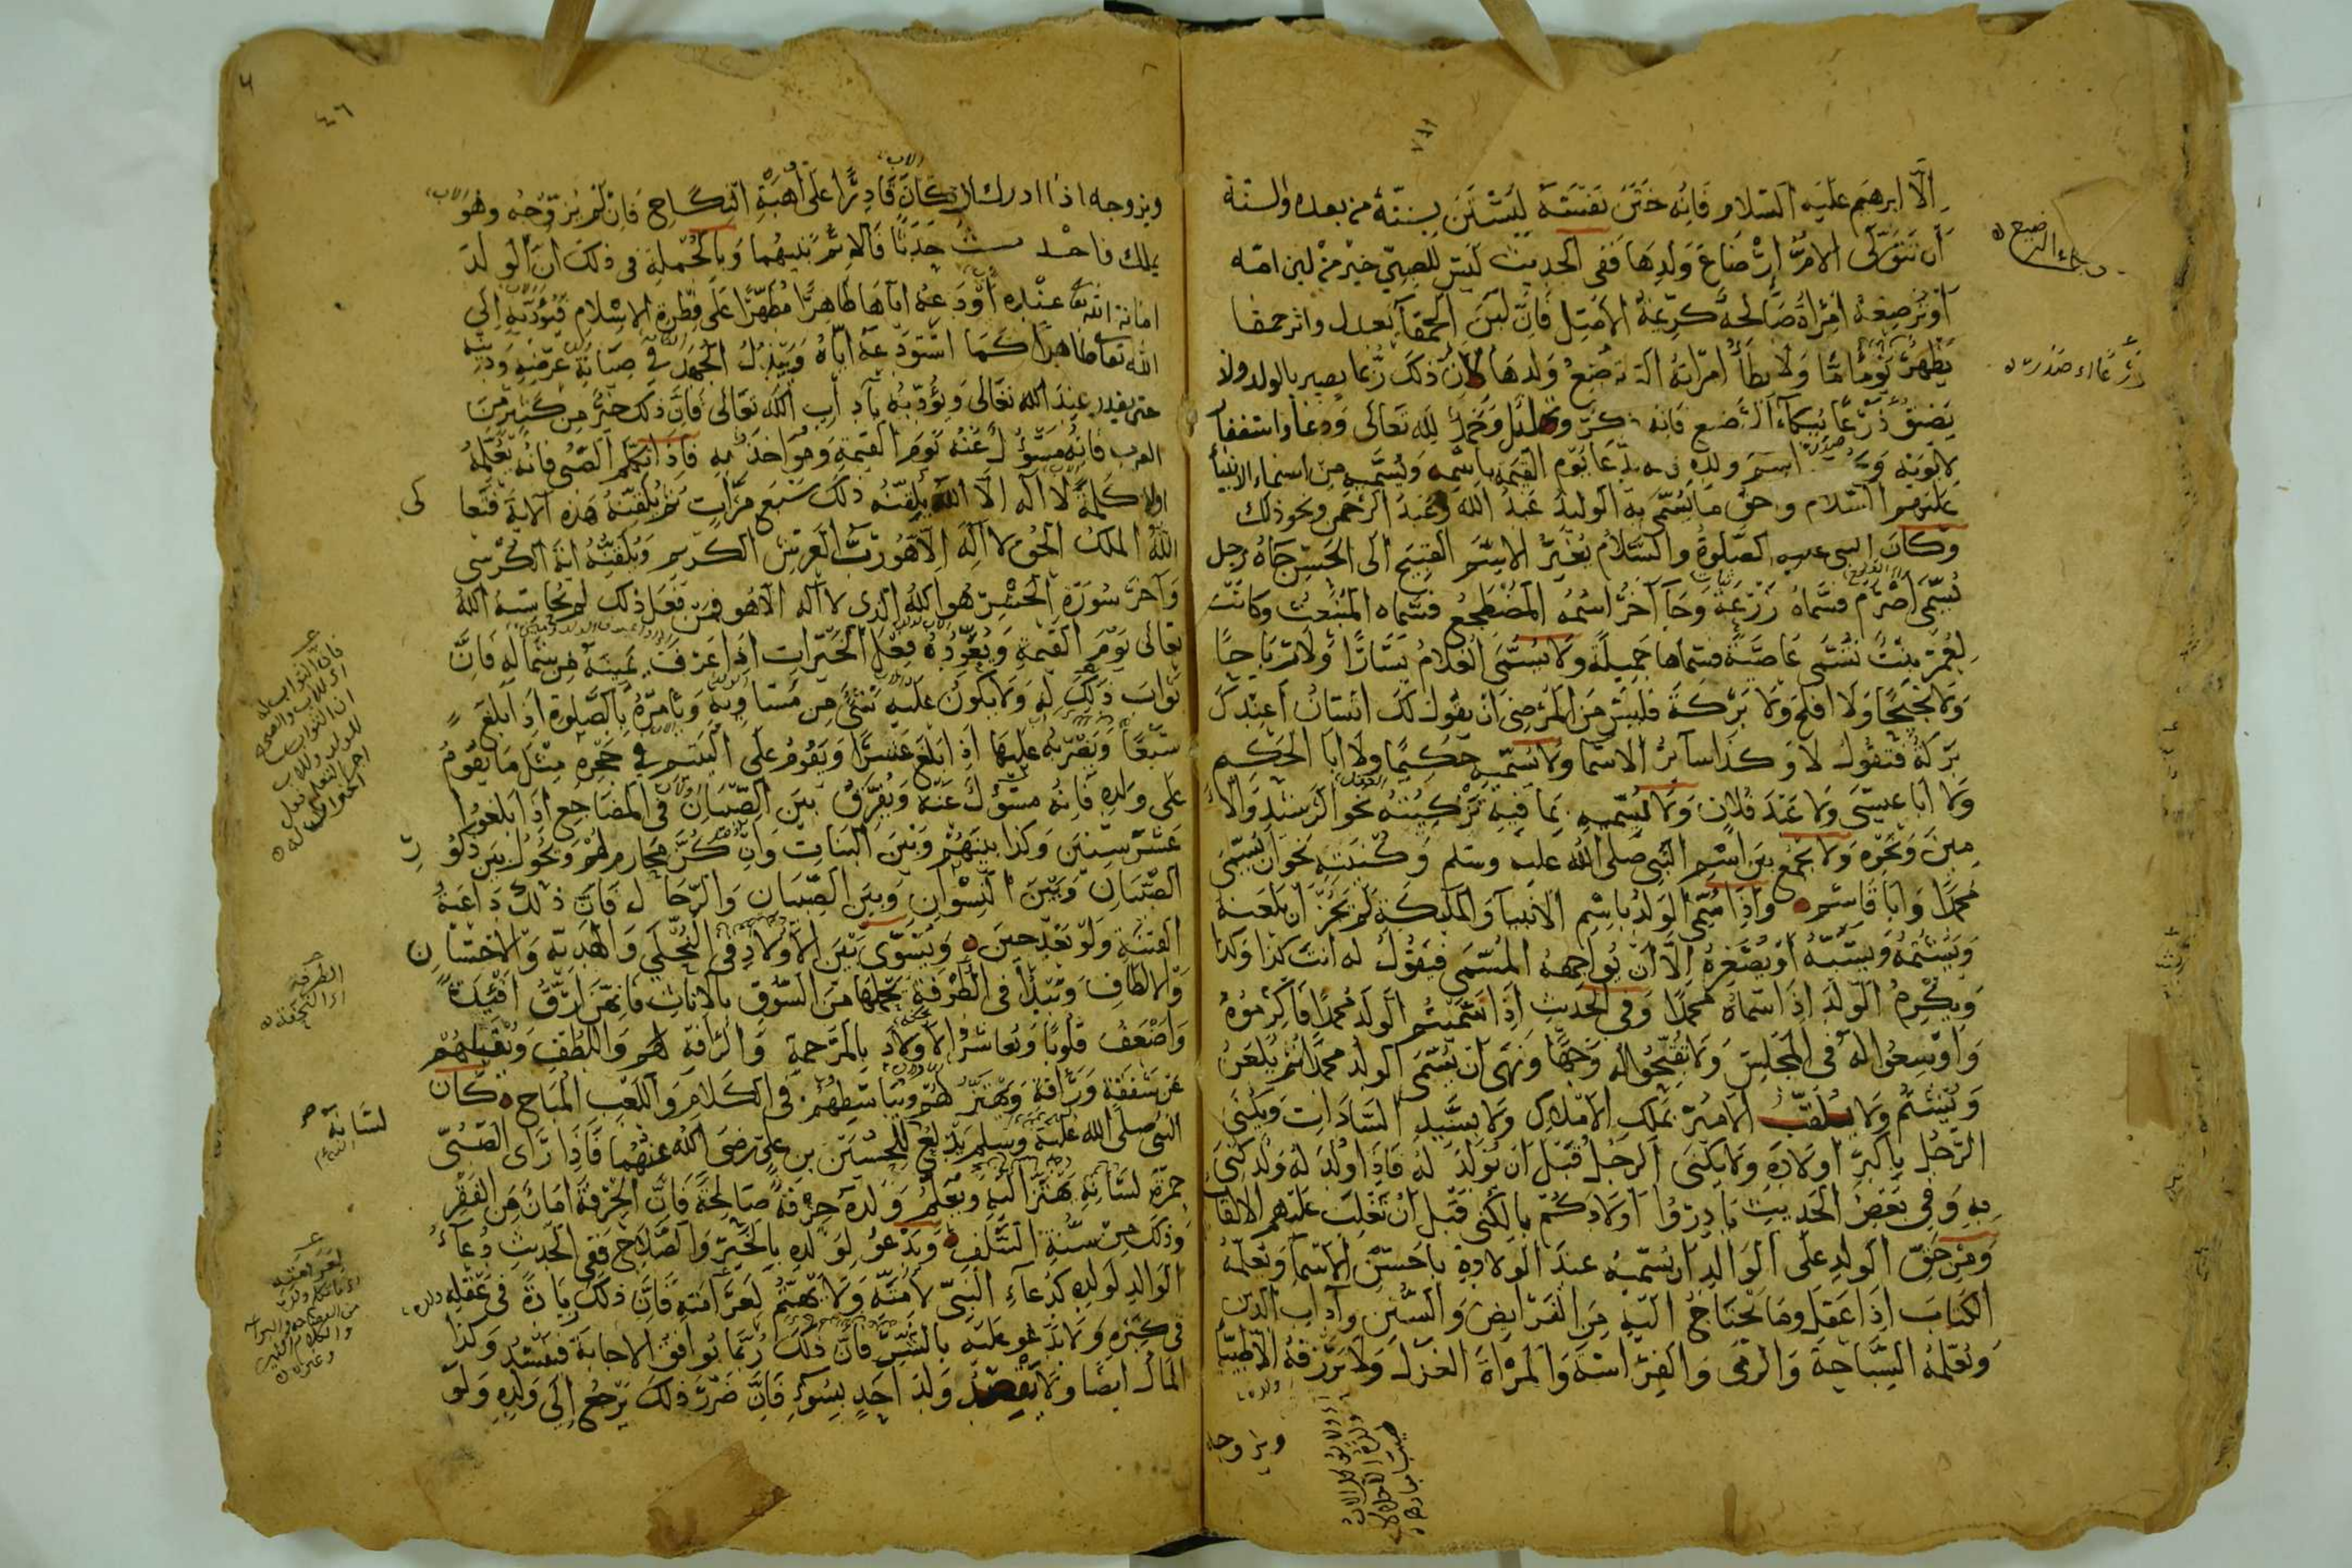 إلا ابرهيم عليه السلام فانه ختن نفسه ليستن بسنته من بعده والسنة
أن تتولى الام إرضاع ولدها ففى الحديث ليس للصبي خير من لبن امه
أو ترضعه امرأة صالحة كريمة الاصل فان لبن الحمقآ يعدى واثر حمقها
يظهر يوما ما ولا يطأ امرأته التى ترضع ولدها لان ذلك ربما يضر بالولد ولا
يضيق ذرعا ببكاء الرضيع فانه ذكر وتهليل وتحميد لله تعالى ودعا واستغفا
لابويه و اسم ولده يدعا يوم القيمة باسمه ويسميه من اسماء الانبيأ
عليهم السلام وحق ما يسمى به الوليد عبد الله وعبد الرحمن ونحو ذلك
وكان النبى عليه الصلوة والسلام يغير الاسم القبيح الى الحسن جاه رجل
يسمى أصرم فسماه زرعة وجآ آخر اسمه المضطجع فسماه المنبعث وكانت
لعمر بنت تسمى عاصية فسماها جميلة ولا يسمى الغلام يسارا ولا رباحا
ولا نجيحا ولا افلح ولا بركة فليس من المرضى ان يقول لك انسان اعندك
بركة فتقول لا وكذا سائر الاسما ولا يسميه حكيما ولا ابا الحكم
ولا ابا عيسى ولا عبد فلان ولا يسميه بما فيه تزكيته نحو الرشيد والا
مين ونحوه ولا يجمع بين اسم النبى صلى الله عليه وسلم وكنيته نحو ان يسمى
محمدا وابا قاسم واذا سمى الولد باسم الانبيآ والمليكة لم يجز ان يلعنه
ويشتمه ويسبه أو يصغره إلا ان يواجهه المسمى فيقول له انت كذا وكذا
ويكرم الولد اذا سماه محمدا وفى الحديث اذا سميتم الولد محمدا فأكرموه
واوسعوا له فى المجلس ولا تقبحوا له وجها ونهى ان يسمى الولد محمدا ثم يلعن
ويشتم ولا يلقب الامير بملك الاملاك ولا بسيد السادات ويكنى
الرجل باكبر اولاده ولا يكنى الرجل قبل ان يولد له فاذا ولد له ولد كنى
به وفى بعض الحديث بادروا اولادكم بالكنى قبل ان تغلب عليهم الالقا
ومن حق الولد على الوالد ان يسميه عند الولادة باحسن الاسمآ ويعلمه
الكتاب اذا عقل وما يحتاج اليه من الفرايض والسنن وآداب الدين
ويعلمه السباحة والرمى والفراسة والمرأة الغزل ولا يرزقه الا طيبا
ويزوجه
٤٦
ويزوجه اذا ادرك ان كان قادرا على أهبة النكاح فان لم يزوجه وهو
يملك فاحدث حدثا فالاثم بينهما وبالجملة فى ذلك ان الولد
امانة الله عنده أودعه اياها طاهرا مطهرا على فطرة الاسلام فيؤديه الى
الله تعا طاهرا كما استودعه اياه ويبذل الجهد فى صيانة عرضه ودينه
حتى يعذر عند الله تعالى ويؤدبه بآداب الله تعالى فان ذلك خير من كثير من
القرب فانه مسؤل عنه يوم القيمة ومؤاخذ به فاذا تكلم الصبى فانه يعلمه
اولا كلمة لا اله الا الله يلقنه ذلك سبع مرات ثم يلقنه هذه الاية فتعا
الله الملك الحق لا اله الا هو رب العرش الكريم ويلقنه اية الكرسى
وآخر سورة الحشر هو الله الذى لا اله الا هو فمن فعل ذلك لم يحاسبه الله
تعالى يوم القيمة ويعوده فعل الخيرات اذا عرف يمينه من شماله فان
ثواب ذلك له ولا يكون عليه شئ من مساويه ويأمره بالصلوة اذا بلغ
سبعا ويضربه عليها اذا بلغ عشرا ويقوم على اليتيم فى حجره مثل ما يقوم
على ولده فانه مسؤل عنه ويفرق بين الصبيان فى المضاجع اذا بلغوا
عشر سنين وكذا بينهم وبين البنات وان كن محارم لهم ويحول بين ذكو
الصبيان وبين النسوان وبين الصبيان والرجال فان ذلك داعية
الفتنة ولو بعد حين ويسوى بين الاولاد فى النحلى والهدية والاحسان
والالطاف ويبدأ فى الطرفة يحملها من السوق بالاناث فانهن ارق افئدة
واضعف قلوبا ويعاشر الاولاد بالمرحمة والرأفة لهم واللطف وتقبيلهم
عن شفقة ورأفة ويهتز لهم ويباسطهم فى الكلام واللعب المباح كان
النبى صلى الله عليه وسلم يدلع للحسين بن على رضى الله عنهما فاذا راى الصبى
حمرة لسانه يهتز اليه ويعلم ولده حرفة صالحة فان الحرفة امان من الفقر
وذلك من سنة السلف ويدعو لولده بالخير والصلاح ففى الحديث دعآ
الوالد لولده كدعاء النبى لامته ولا يهتم لعرامته فان ذلك زيادة فى عقله
فى كبره ولا يدعو عليه بالشر فان ذلك ربما يوافق الاجابة فيفسد وكذا
المال ايضا ولا يقصد ولد احد بسوء فان ضرر ذلك يرجع الى ولده ولو